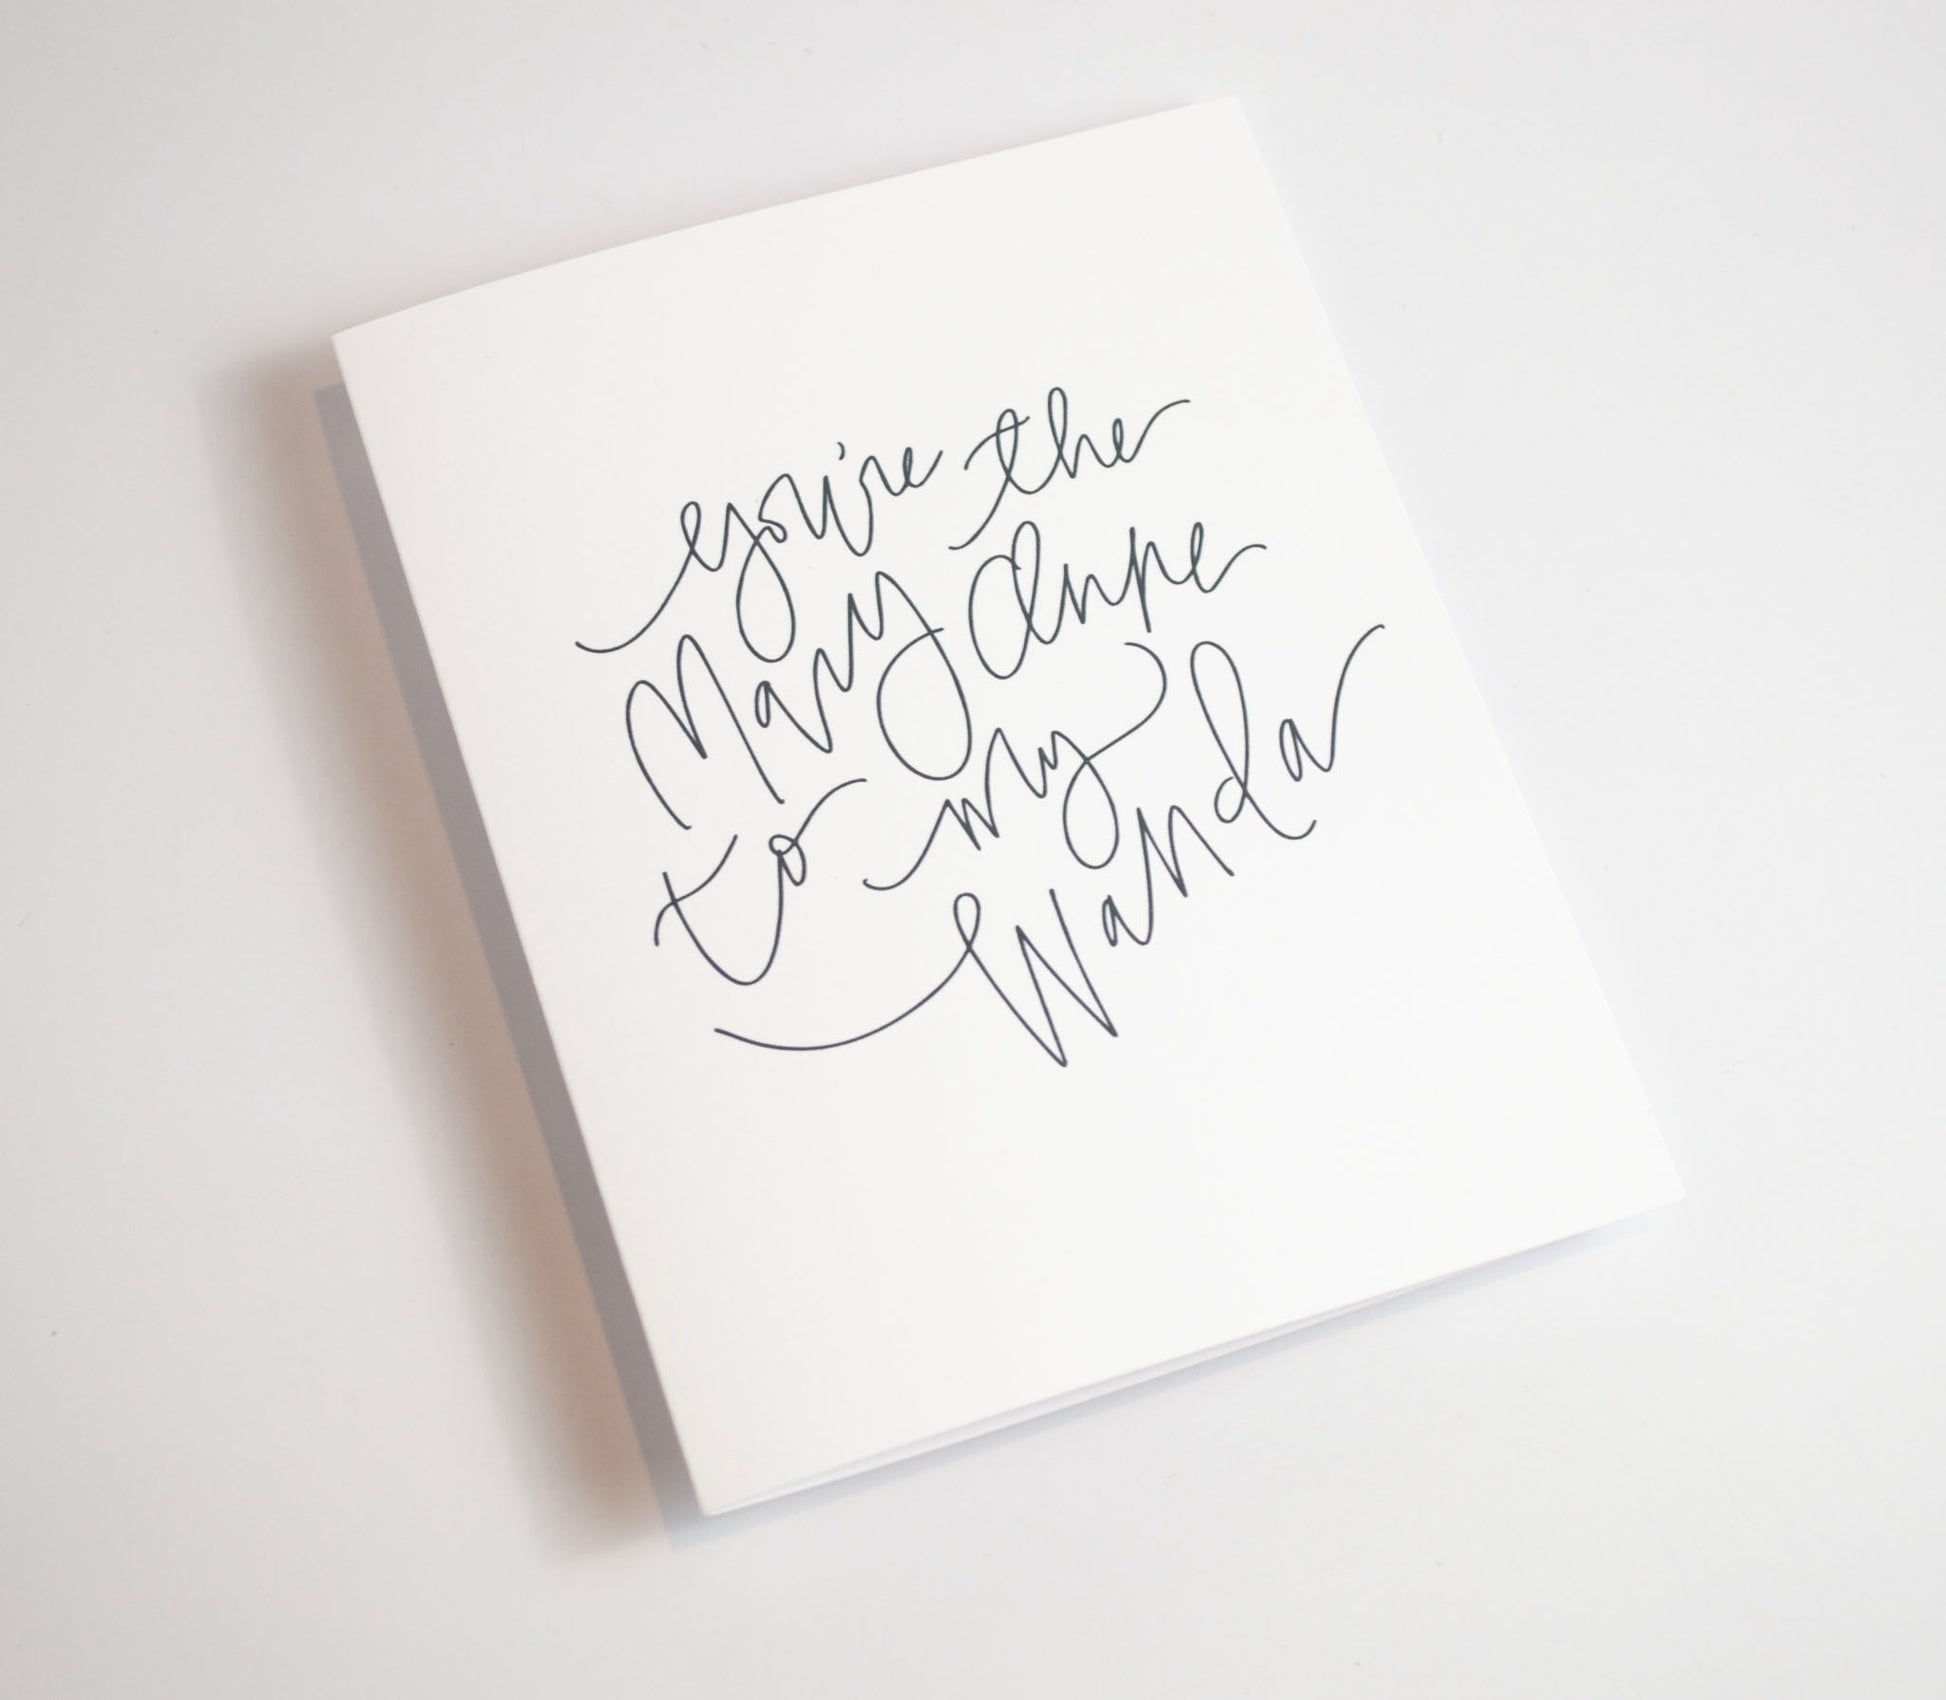 you're the
Mary Anne
to my
Wanda